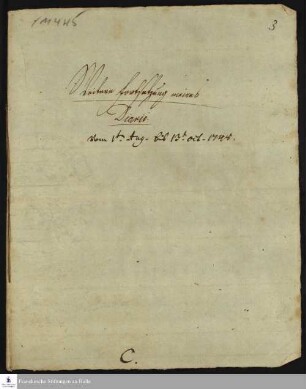 1 M 4 4:5
3
Weitere Fortsetzung meines
Diarii
vom 1t. Aug. bis 13t. oct. 1744.
C.
Franckesche Stiftungen zu Halle